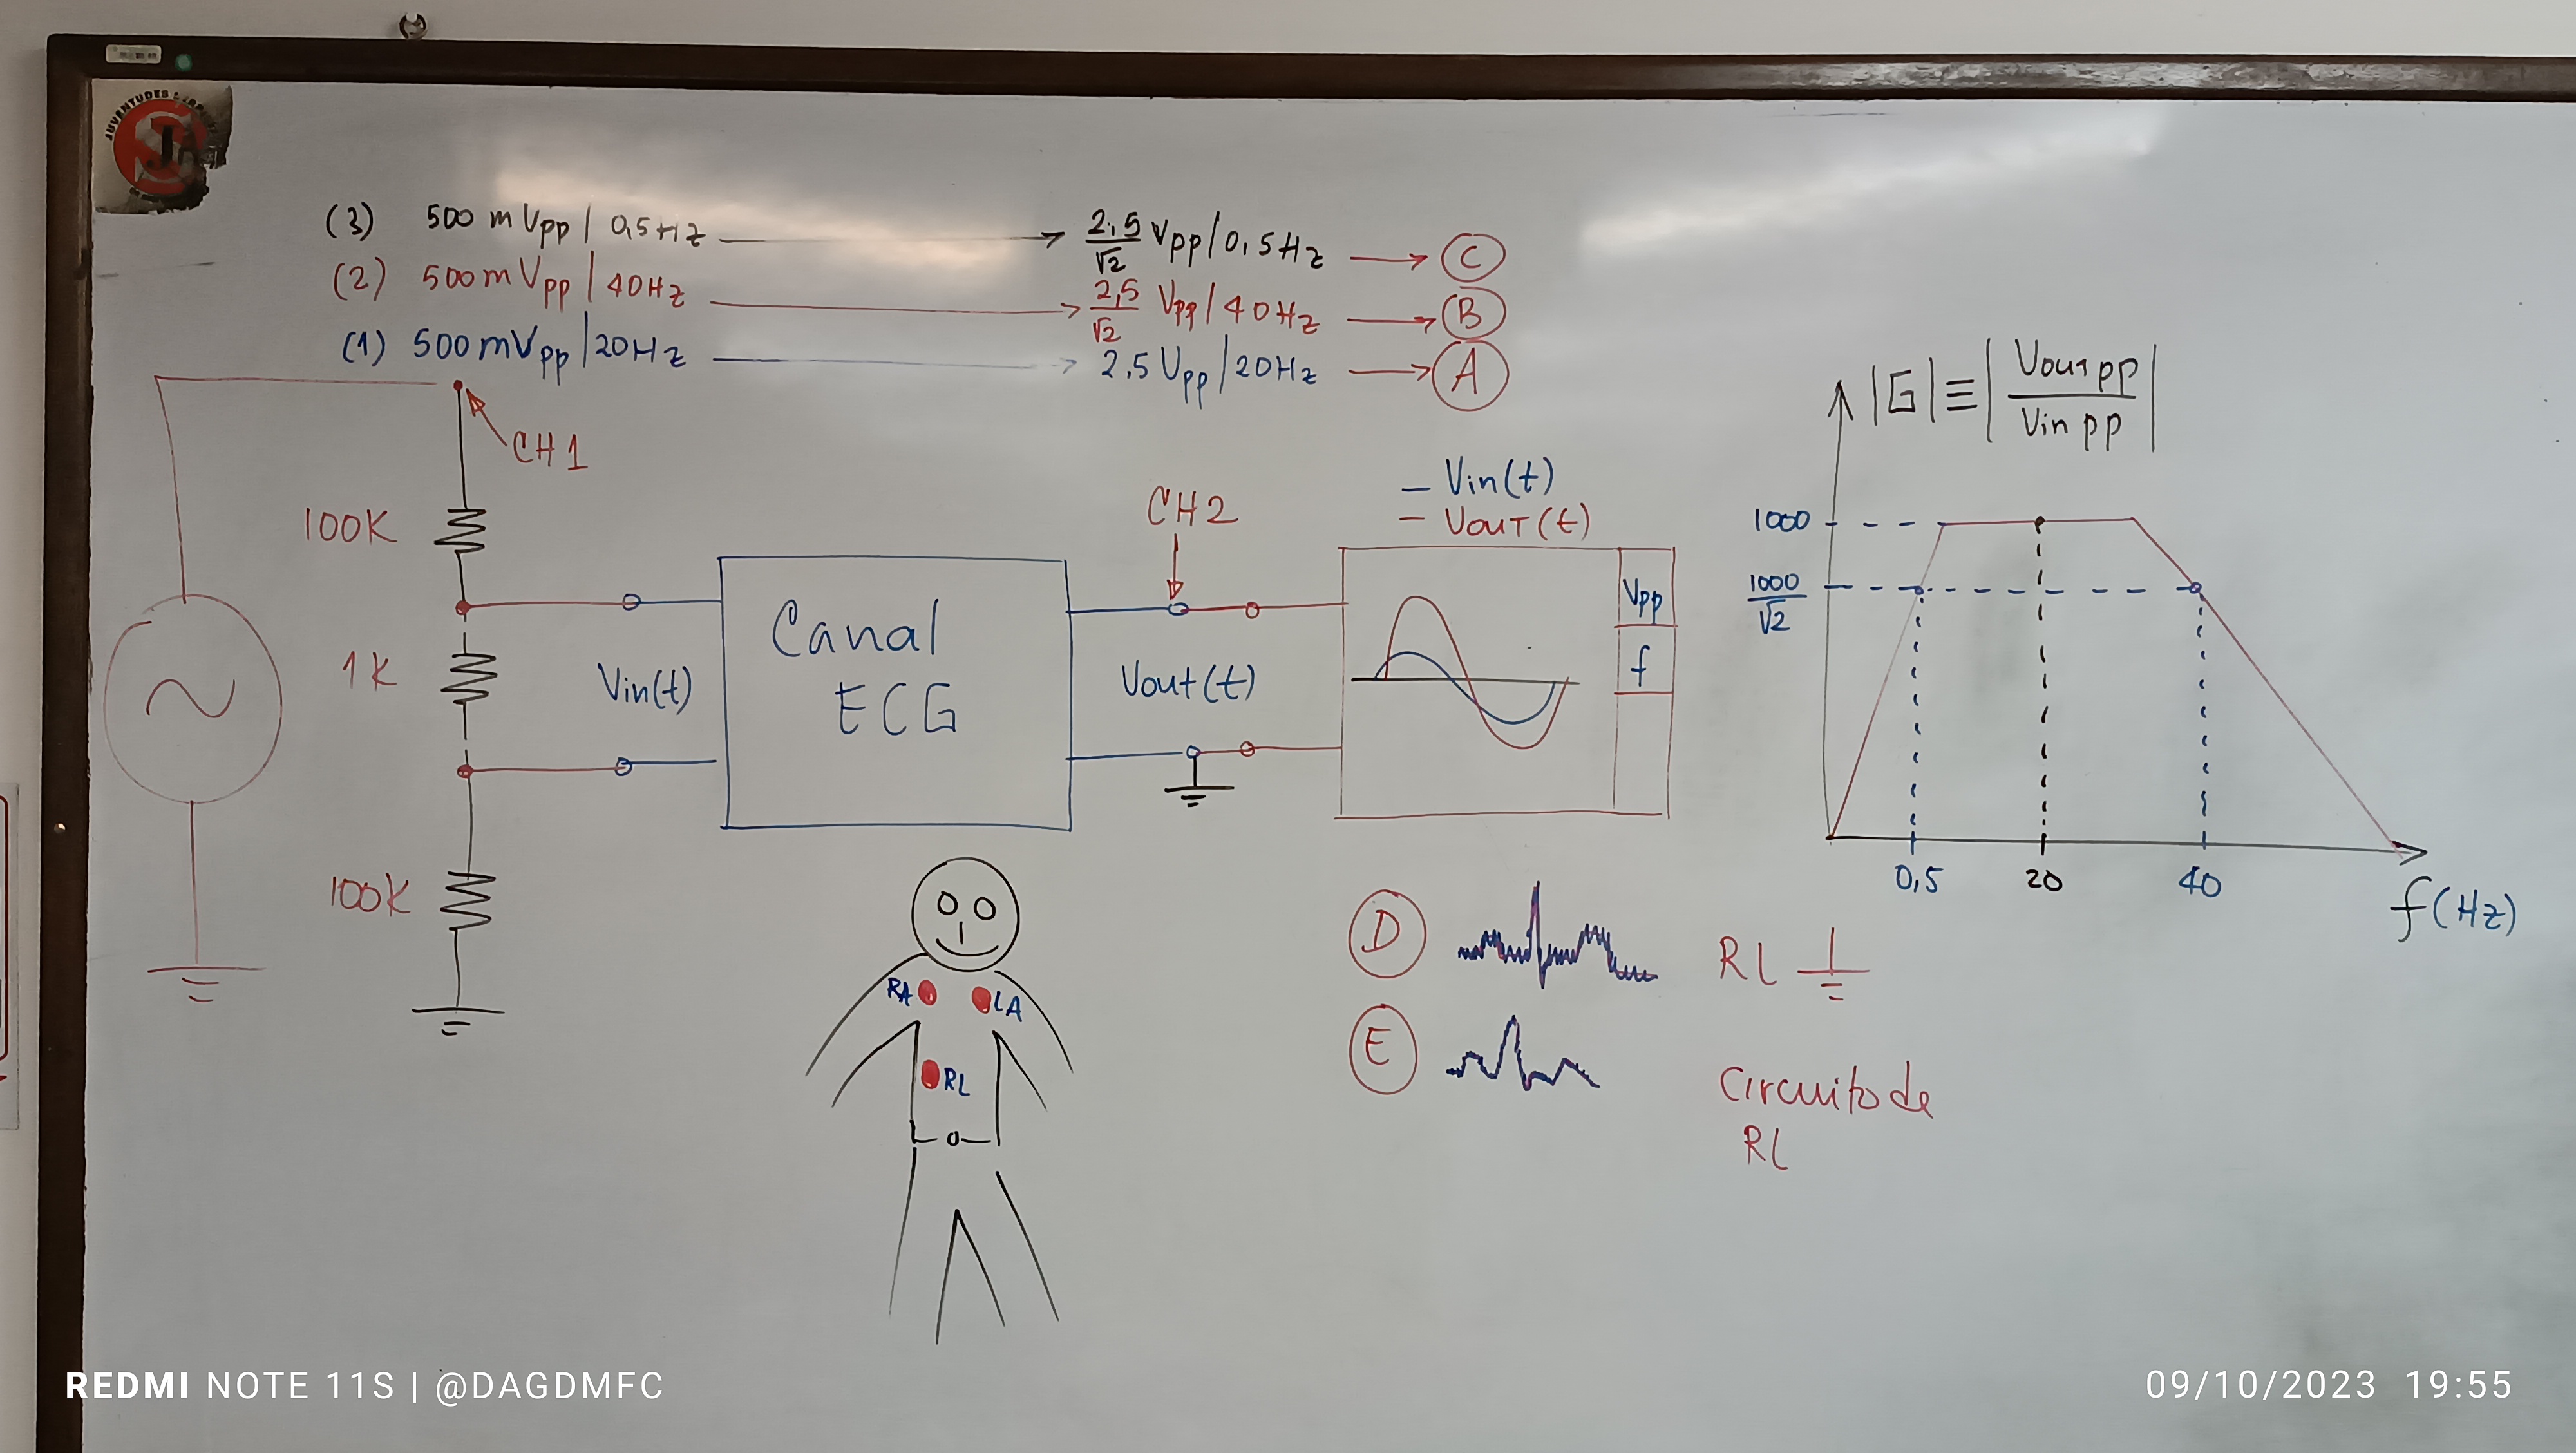 (3) 500 mVpp / 0,5Hz → 2,5/√2 Vpp/0,5Hz → C
(2) 500mVpp / 40Hz → 2,5/√2 Vpp/40Hz → B
(1) 500mVpp/20Hz → 2,5Vpp/20Hz → A
CH1
100K
1K
100K
Vin(t)
Canal
ECG
CH2
Vout(t)
— Vin(t)
— Vout(t)
Vpp
f
|G| ≡ |Vout pp / Vin pp|
1000
1000/√2
0,5 20 40
f(Hz)
RA LA
RL
D RL
E Circuito de
RL
REDMI NOTE 11S | @DAGDMFC
09/10/2023 19:55